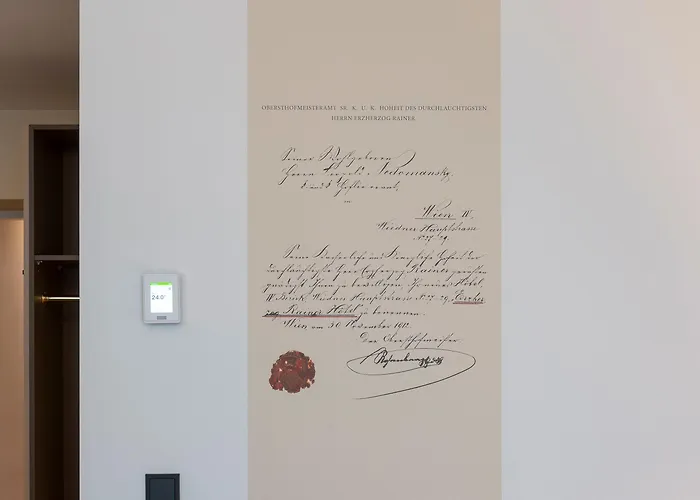 OBERSTHOFMEISTERAMT SR. K. U. K. HOHEIT DES DURCHLAUCHTIGSTEN
HERRN ERZHERZOG RAINER.
Seiner Wohlgeboren
Herrn Nedomansky,
in
Wien IV.
Wiedner Hauptstrasse
No 27-29.
Seine Kaiserliche und Königliche Hoheit der
durchlauchtigste Herr Erzherzog Rainer geruhten
gnädigst Ihnen zu bewilligen, Ihr neues Hotel,
IV. Bezirk, Wiedner Hauptstrasse No 27-29, Erzher
zog Rainer Hotel zu benennen.
Wien am 30 November 1912.
Der Obersthofmeister
24.0°